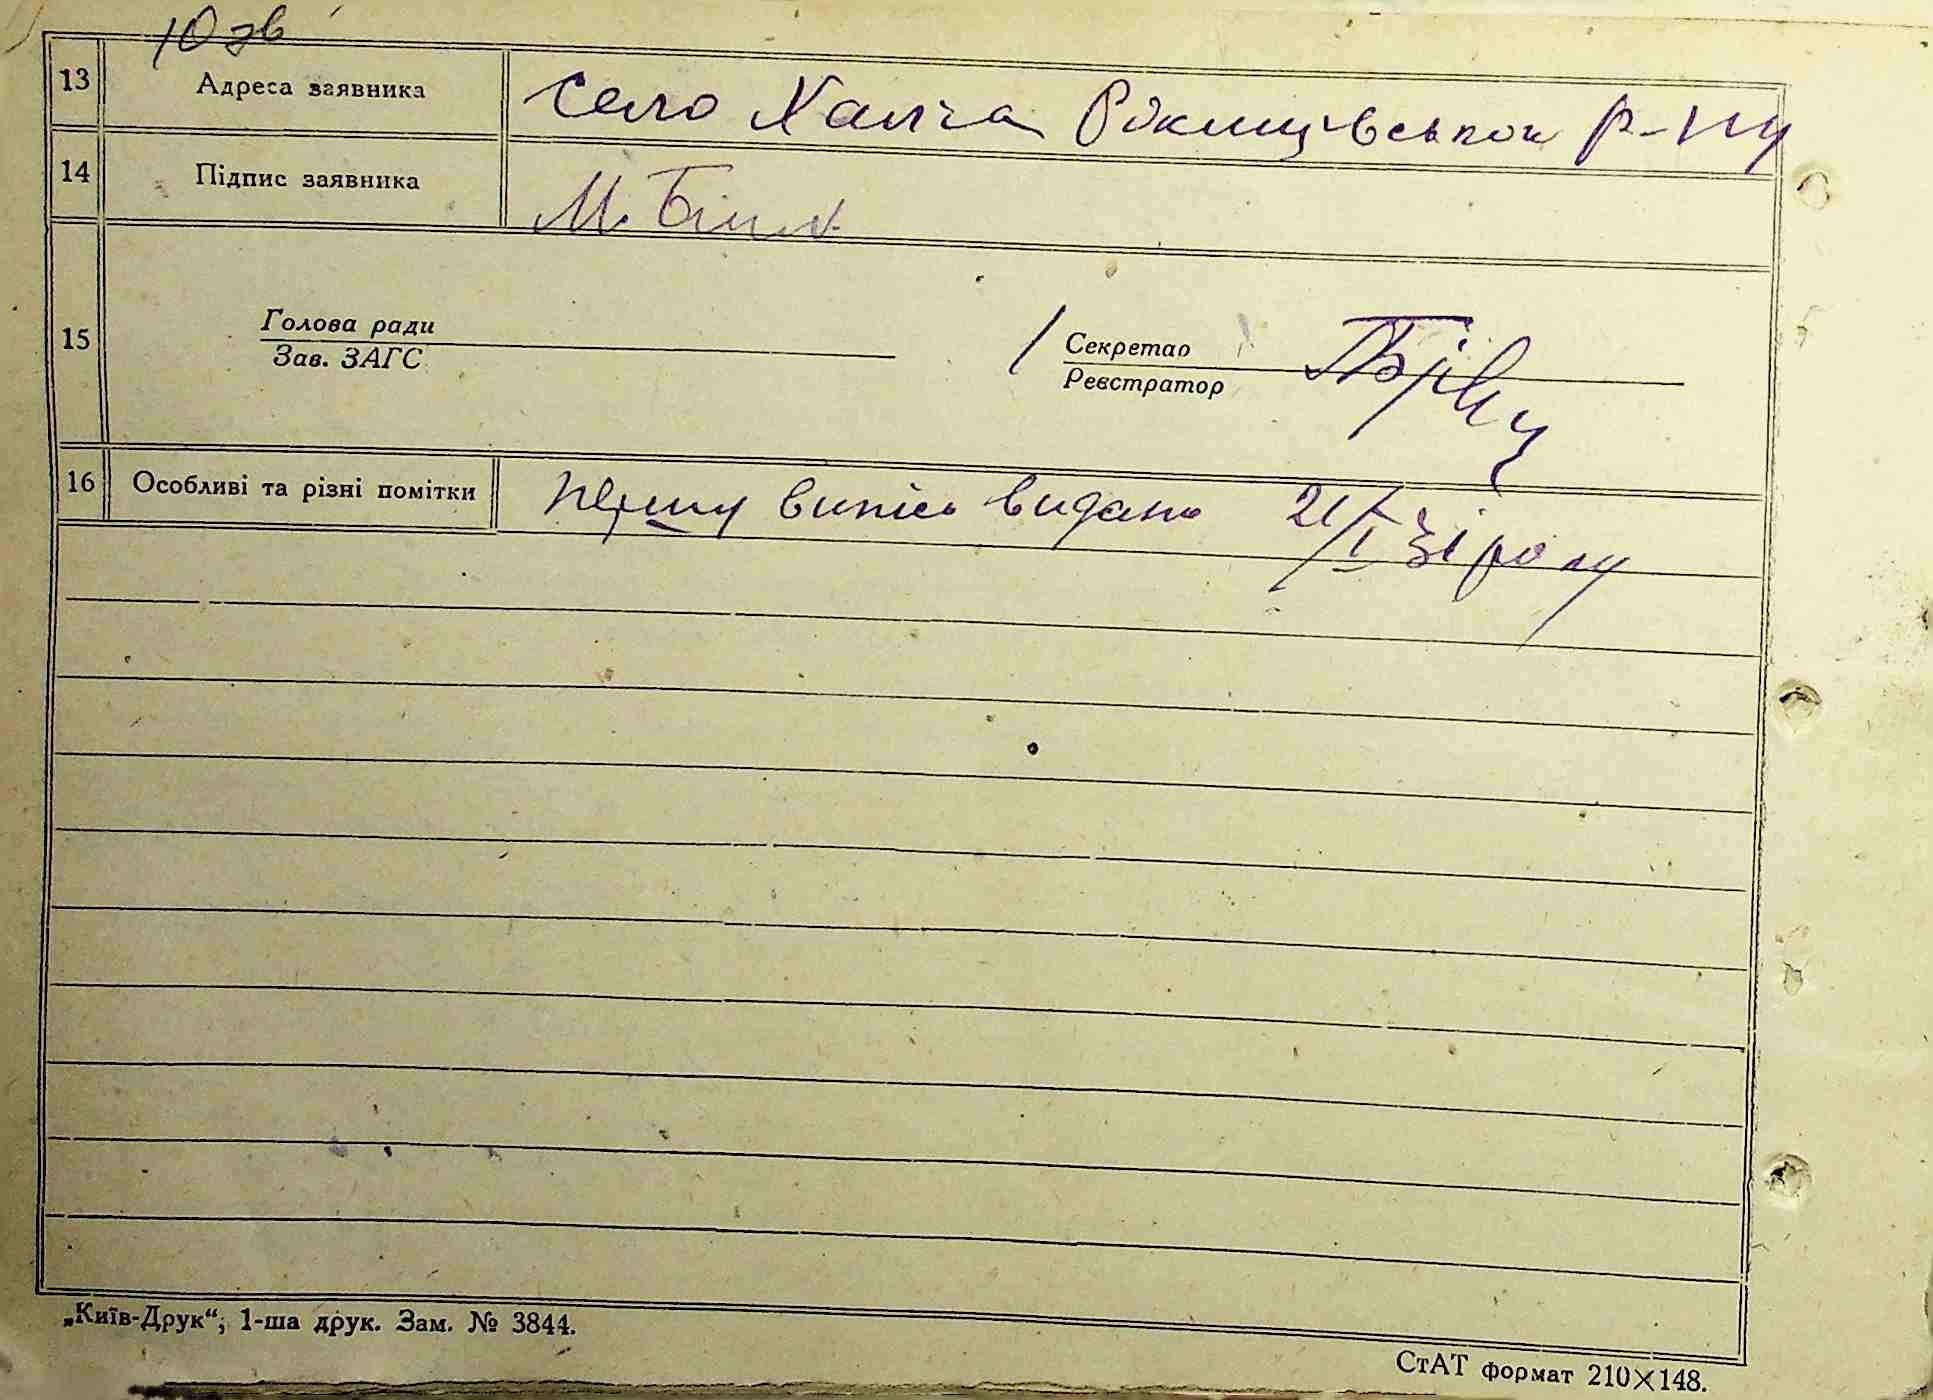 10 зв
13 Адреса заявника село Халча Ржищівського р-ну
14 Підпис заявника М. Білик
Голова ради Секретар
15
Зав. ЗАГС Реєстратор
16 Особливі та різні помітки першу випісь видано 21/I 31 року
„Київ-Друк“, 1-ша друк. Зам. № 3844.
СтАТ формат 210×148.